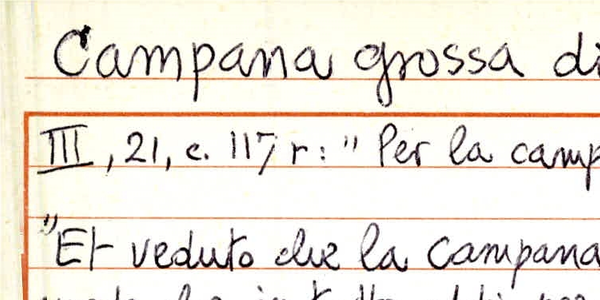 Campana grossa di
III, 21, c. 117 r: " Per la camp
"Et veduto che la campana